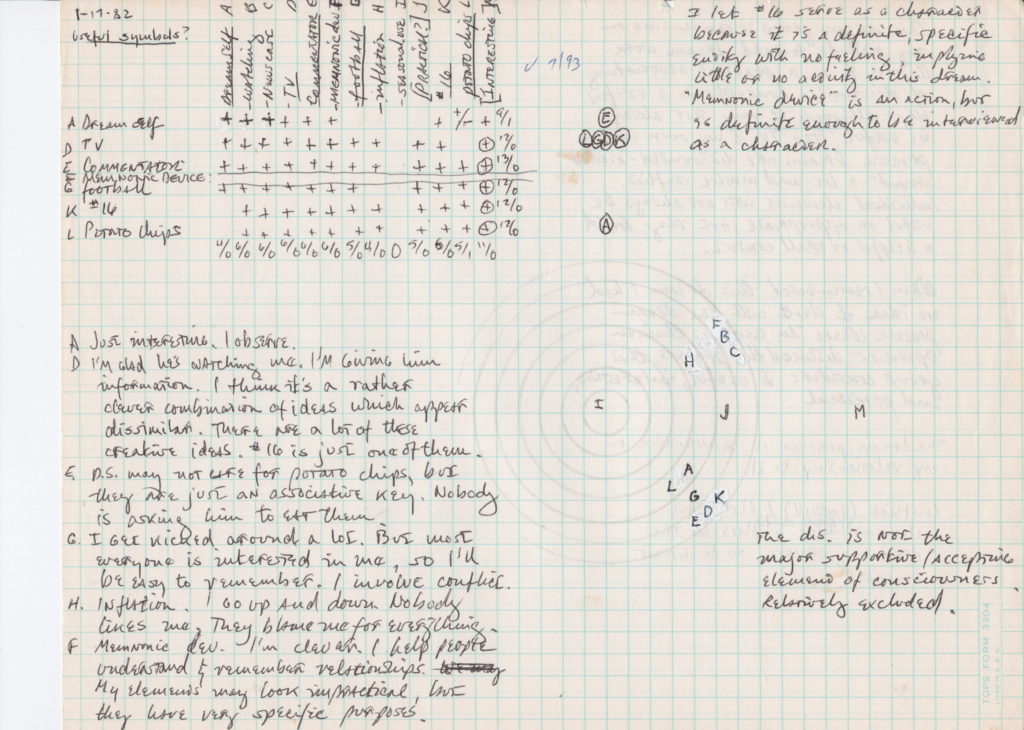 1-17-82
Useful symbols?
A Dream self
B - watching
C - Newscast
D - TV
Commentator E
- mnemonic dev. F
- football
H - inflation
- seasonal use I
[Practical?] J
K #16
potato chips L
[Interesting]
✓ 7/93
A Dream self + + + + + + + + +/- + 9/1
D TV + + + + + + + + + + + ⊕ 12/0
E Commentator + + + + + + + + + + + ⊕ 12/0
F Memnonic Device
G Football + + + + + + + + + + ⊕ 12/0
K #16 + + + + + + + + + + ⊕ 12/0
L Potato chips + + + + + + + + + + ⊕ 12/0
4/0 6/0 6/0 6/0 6/0 6/0 5/0 4/0 0 5/0 6/0 5/1 11/0
E
L G D K
A
I let #16 serve as a character
because it is a definite, specific
entity with no feeling, implying
little or no activity in this dream.
"Memnonic device" is an action, but
is definite enough to be interviewed
as a character.
A Just interesting. I observe.
D I'm glad he's watching me. I'm giving him
information. I think it's a rather
clever combination of ideas which appear
dissimilar. There are a lot of these
creative ideas. #16 is just one of them.
E D.S. may not care for potato chips, but
they are just an associative key. Nobody
is asking him to eat them.
G. I get kicked around a lot. But most
everyone is interested in me, so I'll
be easy to remember. I involve conflict.
H. Inflation. I go up and down. Nobody
likes me, They blame me for everything.
F Memnonic dev. I'm clever. I help people
understand & remember relationships. We may
My elements may look impractical, but
they have very specific purposes.
F
B
C
H
I
J
M
A
L
G
K
D
E
The d.s. is not the
major supportive/accepting
element of consciousness
Relatively excluded.
TOPS FORM 3304